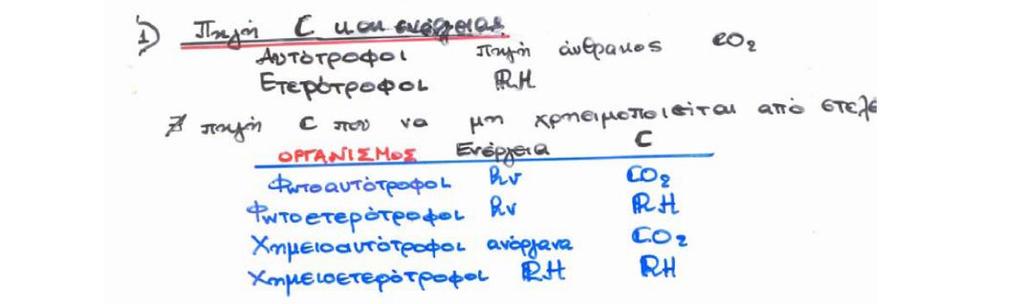 1) Πηγή C και ενέργειας.
Αυτότροφοι πηγή άνθρακος CO2
Ετερότροφοι RH
∄ πηγή C που να μη χρησιμοποιείται από στελε
ΟΡΓΑΝΙΣΜΟΣ Ενέργεια C
Φωτοαυτότροφοι hν CO2
Φωτοετερότροφοι hν RH
Χημειοαυτότροφοι ανόργανα CO2
Χημειοετερότροφοι RH RH